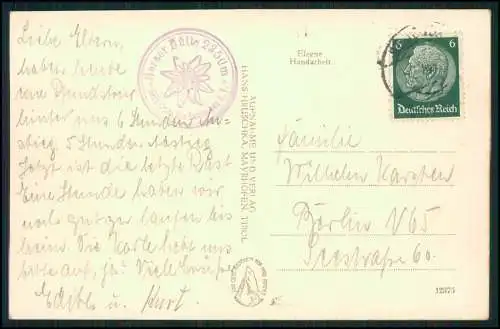 Liebe Eltern,
haben heute
eine Rundtour
hinter uns 6 Stunden An=
stieg 5 Stunden Abstieg
Jetzt ist die letzte Rast
Eine Stunde haben wir
noch zu laufen bis
heim. Die Karte hebt uns
bitte auf, ja? Viele Grüße
u. Kurt.
Hütte 2250m
Eigene
Handarbeit
AUFNAHME UND VERLAG
HANS HRUSCHKA, MAYRHOFEN, TIROL
6 6
Deutsches Reich
Familie
Wilhelm Karsten
Berlin N 65
Seestraße 60.
12375